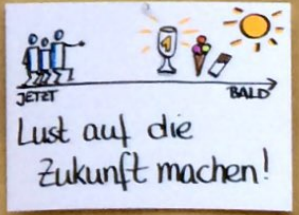 1
JETZT BALD
Lust auf die
Zukunft machen!